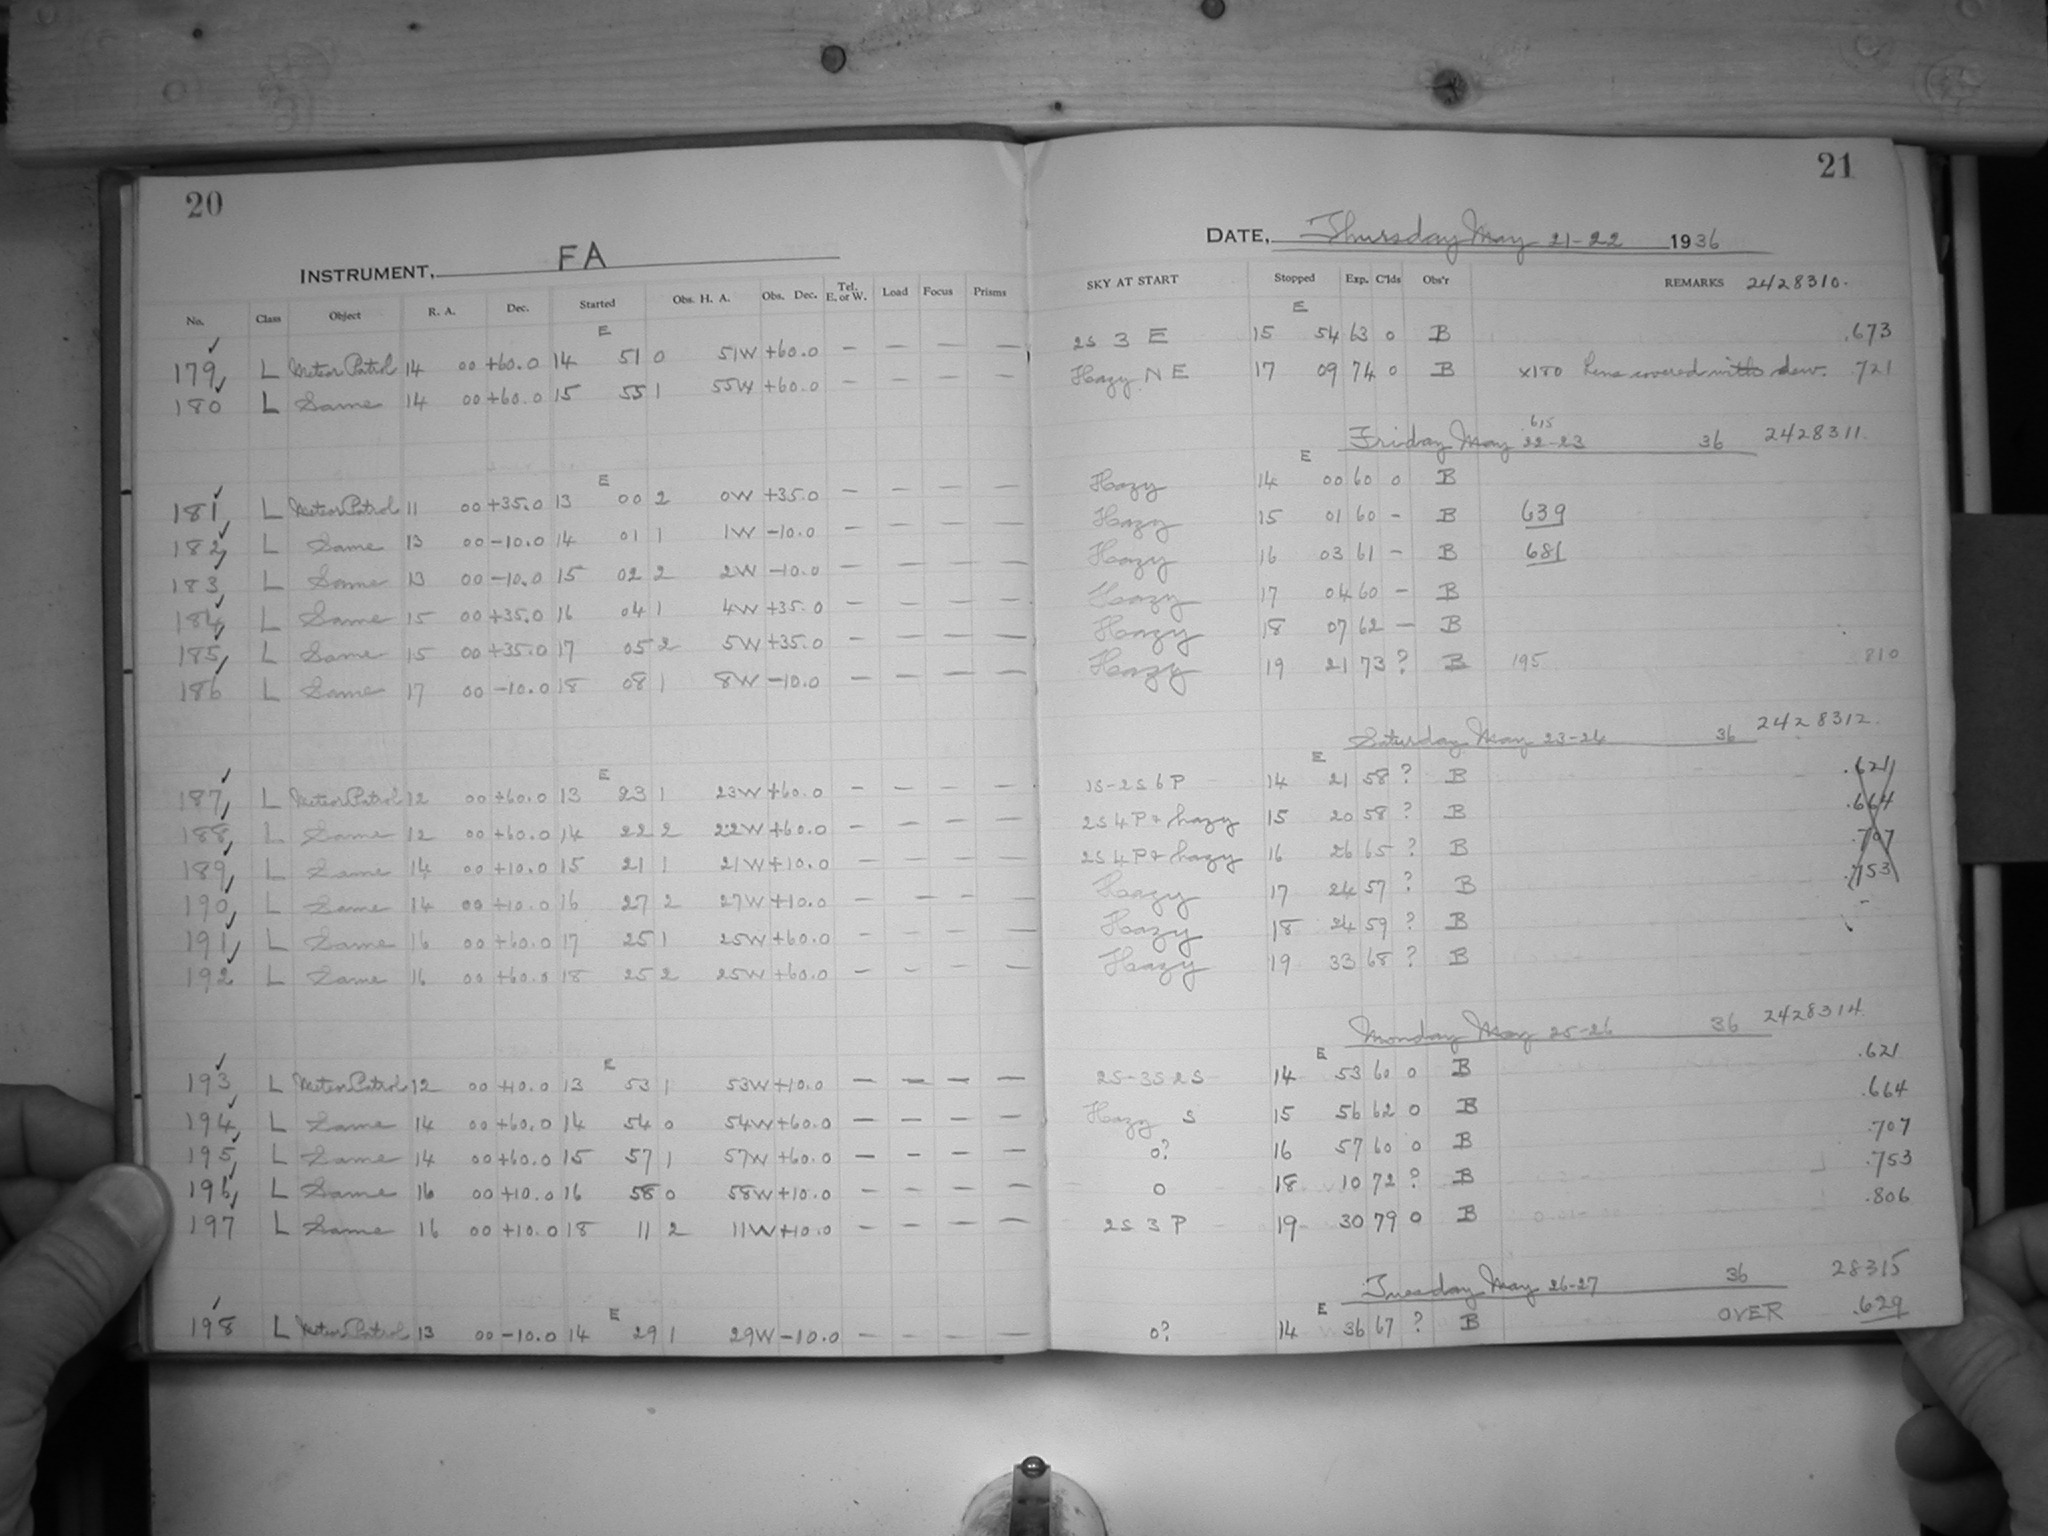 20
INSTRUMENT, FA
No. Class Object R. A. Dec. Started Obs. H. A. Obs. Dec. Tel. E. or W. Load Focus Prisms
E
179 L Meteor Patrol 14 00 +60.0 14 51 0 51W +60.0 — — — —
180 L Same 14 00 +60.0 15 55 1 55W +60.0 — — — —
E
181 L Meteor Patrol 11 00 +35.0 13 00 2 0W +35.0 — — — —
182 L Same 13 00 -10.0 14 01 1 1W -10.0 — — — —
183 L Same 13 00 -10.0 15 02 2 2W -10.0 — — — —
184 L Same 15 00 +35.0 16 04 1 4W +35.0 — — — —
185 L Same 15 00 +35.0 17 05 2 5W +35.0 — — — —
186 L Same 17 00 -10.0 18 08 1 8W -10.0 — — — —
E
187 L Meteor Patrol 12 00 +60.0 13 23 1 23W +60.0 — — — —
188 L Same 12 00 +60.0 14 22 2 22W +60.0 — — — —
189 L Same 14 00 +10.0 15 21 1 21W +10.0 — — — —
190 L Same 14 00 +10.0 16 27 2 27W +10.0 — — — —
191 L Same 16 00 +60.0 17 25 1 25W +60.0 — — — —
192 L Same 16 00 +60.0 18 25 2 25W +60.0 — — — —
E
193 L Meteor Patrol 12 00 +10.0 13 53 1 53W +10.0 — — — —
194 L Same 14 00 +60.0 14 54 0 54W +60.0 — — — —
195 L Same 14 00 +60.0 15 57 1 57W +60.0 — — — —
196 L Same 16 00 +10.0 16 58 0 58W +10.0 — — — —
197 L Same 16 00 +10.0 18 11 2 11W +10.0 — — — —
E
198 L Meteor Patrol 13 00 -10.0 14 29 1 29W -10.0 — — — —
21
DATE, Thursday May 21-22 1936
SKY AT START Stopped Exp. C'lds Obs'r REMARKS 2428310.
E
2S 3 E 15 54 63 0 B .673
Hazy N E 17 09 74 0 B x180 Lens covered with dew. .721
.615
Friday May 22-23 36 2428311.
E
Hazy 14 00 60 0 B
Hazy 15 01 60 - B 639
Hazy 16 03 61 - B 681
Hazy 17 04 60 - B
Hazy 18 07 62 - B
Hazy 19 21 73 ? B 195 810
Saturday May 23-24 36 2428312.
E
1S-2S 6 P 14 21 58 ? B .621
2S 4 P + hazy 15 20 58 ? B .664
2S 4 P + hazy 16 26 65 ? B .707
Hazy 17 24 57 ? B .753
Hazy 18 24 59 ? B
Hazy 19 33 68 ? B
Monday May 25-26 36 2428314.
E
2S-3S 2S 14 53 60 0 B .621
Hazy S 15 56 62 0 B .664
0? 16 57 60 0 B .707
0 18 10 72 ? B .753
2S 3 P 19 30 79 0 B .806
Tuesday May 26-27 36 28315
E
0? 14 36 67 ? B OVER .629